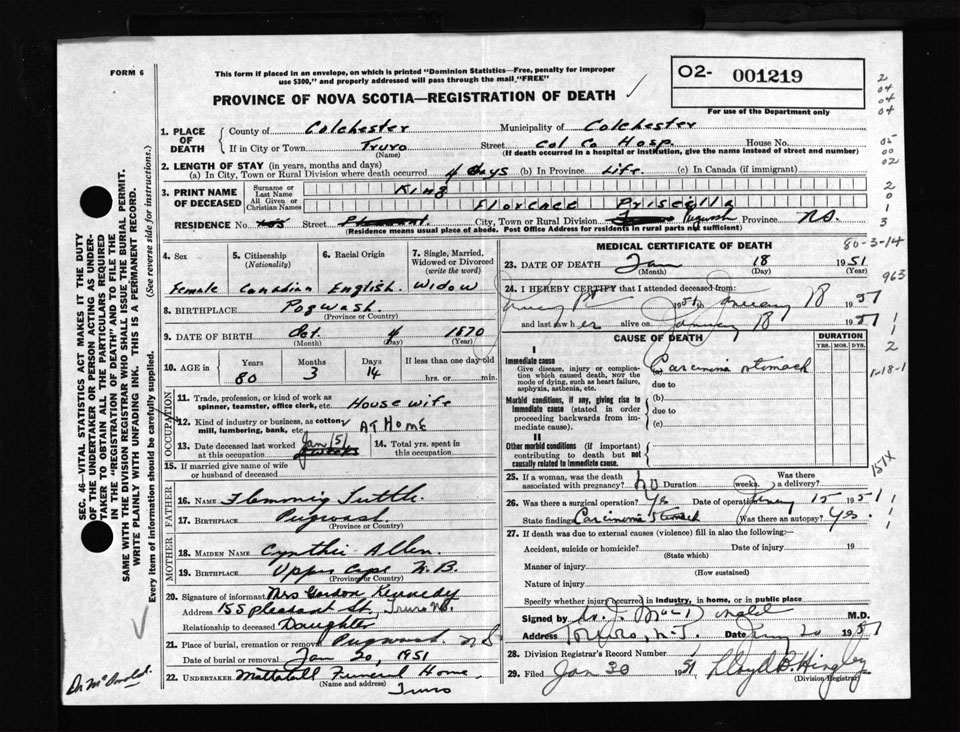 FORM 6
This form if placed in an envelope, on which is printed "Dominion Statistics—Free, penalty for improper
use $300," and properly addressed will pass through the mail, "FREE"
O2- 001219
PROVINCE OF NOVA SCOTIA—REGISTRATION OF DEATH
For use of the Department only
1. PLACE OF DEATH
County of Colchester Municipality of Colchester
If in City or Town Truro Street Col Co Hosp. House No.
(Name) (If death occurred in a hospital or institution, give the name instead of street and number)
2. LENGTH OF STAY (in years, months and days)
(a) In City, Town or Rural Division where death occurred 4 days (b) In Province Life. (c) In Canada (if immigrant)
3. PRINT NAME OF DECEASED
Surname or Last Name King
All Given or Christian Names Florence Priscilla
RESIDENCE No. 155 Street Pleasant. City, Town or Rural Division Pugwash Province N.S.
(Residence means usual place of abode. Post Office Address for residents in rural parts not sufficient)
4. Sex
Female
5. Citizenship (Nationality)
Canadian
6. Racial Origin
English.
7. Single, Married, Widowed or Divorced (write the word)
Widow
8. BIRTHPLACE Pogwash.
(Province or Country)
9. DATE OF BIRTH Oct. 4 1870
(Month) (Day) (Year)
10. AGE in Years Months Days If less than one day old
80 3 14 hrs. or min.
OCCUPATION
11. Trade, profession, or kind of work as
spinner, teamster, office clerk, etc. House wife
12. Kind of industry or business, as cottony
mill, lumbering, bank, etc. AT HOME
13. Date deceased last worked at this occupation Jan/51
14. Total yrs. spent in this occupation
15. If married give name of wife
or husband of deceased
FATHER
16. NAME Tuttle.
17. BIRTHPLACE Pugwash.
(Province or Country)
MOTHER
18. MAIDEN NAME Cynthia Allen.
19. BIRTHPLACE Upper Cape N.B.
(Province or Country)
20. Signature of informant Mrs Gordon Kennedy
Address 155 Pleasant St., Truro N.S.
Relationship to deceased Daughter
21. Place of burial, cremation or removal Pugwash. N S
Date of burial or removal Jan 20, 1951
22. UNDERTAKER Mattatall Funeral Home.
(Name and address) Truro
MEDICAL CERTIFICATE OF DEATH
23. DATE OF DEATH Jan 18 1951
(Month) (Day) (Year)
24. I HEREBY CERTIFY that I attended deceased from:
1951 to January 18 1951
and last saw her alive on January 18 1951
CAUSE OF DEATH
DURATION
YRS. MOS. DYS.
I
Immediate cause
Give disease, injury or complication
which caused death, NOT the
mode of dying, such as heart failure,
asphyxia, asthenia, etc.
(a) Carcinoma stomach
due to
Morbid conditions, if any, giving rise to
immediate cause (stated in order
proceeding backwards from immediate
cause).
(b)
due to
(c)
II
Other morbid conditions (if important)
contributing to death but not
causally related to immediate cause.
25. If a woman, was the death
associated with pregnancy? no Duration (weeks.) Was there a delivery?
26. Was there a surgical operation? Yes Date of operation 15 1951
State findings Carcinoma Stomach (Was there an autopsy? Yes.
27. If death was due to external causes (violence) fill in also the following:—
Accident, suicide or homicide? Date of injury 19
(State which)
Manner of injury
(How sustained)
Nature of injury
Specify whether injury occurred in industry, in home, or in public place
Signed by M.D.
Address Truro, N.S. Date 20 1951
28. Division Registrar's Record Number
29. Filed Jan 30 1951 Lloyd B. Hingley
(Division Registrar)
SEC. 46—VITAL STATISTICS ACT MAKES IT THE DUTY
OF THE UNDERTAKER OR PERSON ACTING AS UNDERTAKER
TO OBTAIN ALL THE PARTICULARS REQUIRED
IN THE "REGISTRATION OF DEATH" AND TO FILE THE
SAME WITH THE DIVISION REGISTRAR WHO SHALL ISSUE THE BURIAL PERMIT.
WRITE PLAINLY WITH UNFADING INK. THIS IS A PERMANENT RECORD.
Every item of information should be carefully supplied. (See reverse side for instructions.)
2
04
04
04
05
00
02
2
0
1
3
80-3-14
963
1
1
2
1-18-1
151X
1
1